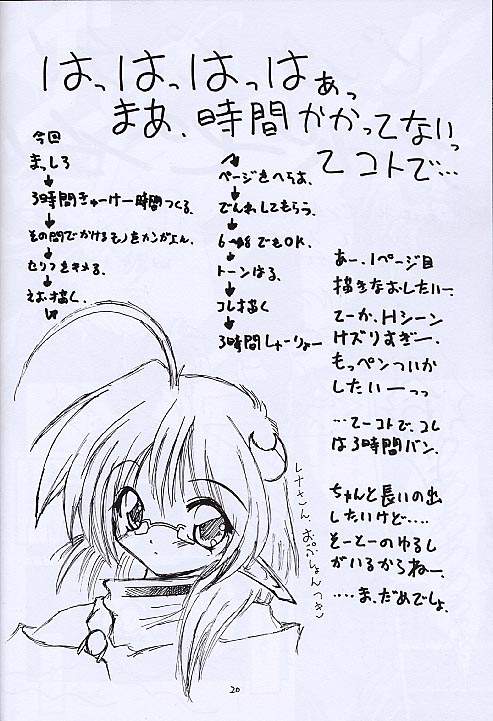 はっはっはっはぁっ
まあ、時間かかってないっ
てコトで…
今回
まっしろ
↓
3時間きゅーけー時間つくる。
↓
その間でかけるモノをカンがえん。
↓
↓
えお描く。
↓
ページをへらす。
↓
でんわしてもらう。
↓
6→8でもOK。
↓
トーンはる。
↓
コレ描く
↓
3時間しゅーりょー
あー、1ページ目
描きなおしたいー。
てーか、Hシーン
ケズりすぎー。
もっペンついか
したいーっっ
…てーコトで、コレ
は3時間バン。
ちゃんと長いの出
したいけど‥‥
そーとーのゆるし
がいるからねー。
‥‥ま、だめでしょ。
レナさん、おぷしょんつき
20